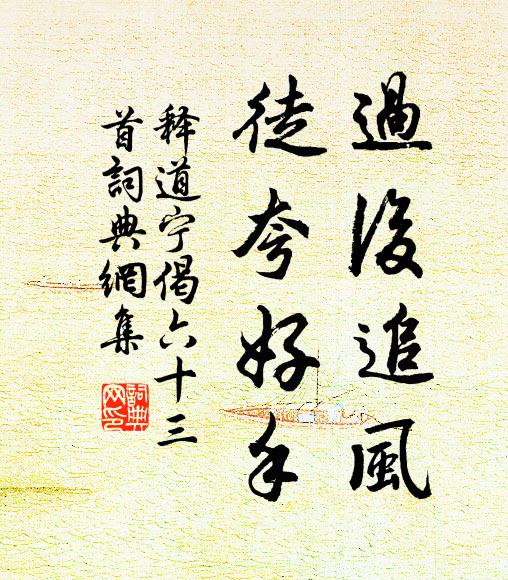 過後追風
徒夸好手
释道宁偈六十三
首詞典網集
詞典
网印